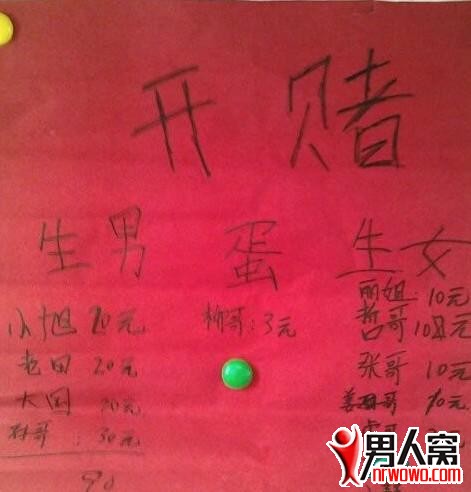 开赌
生男 蛋 生女
小旭 20元
老田 20元
大国 20元
林哥: 30元
90
柳哥: 3元
丽姐: 10元
哲哥 10元
张哥 10元
10元
男人窝
nrwowo.com